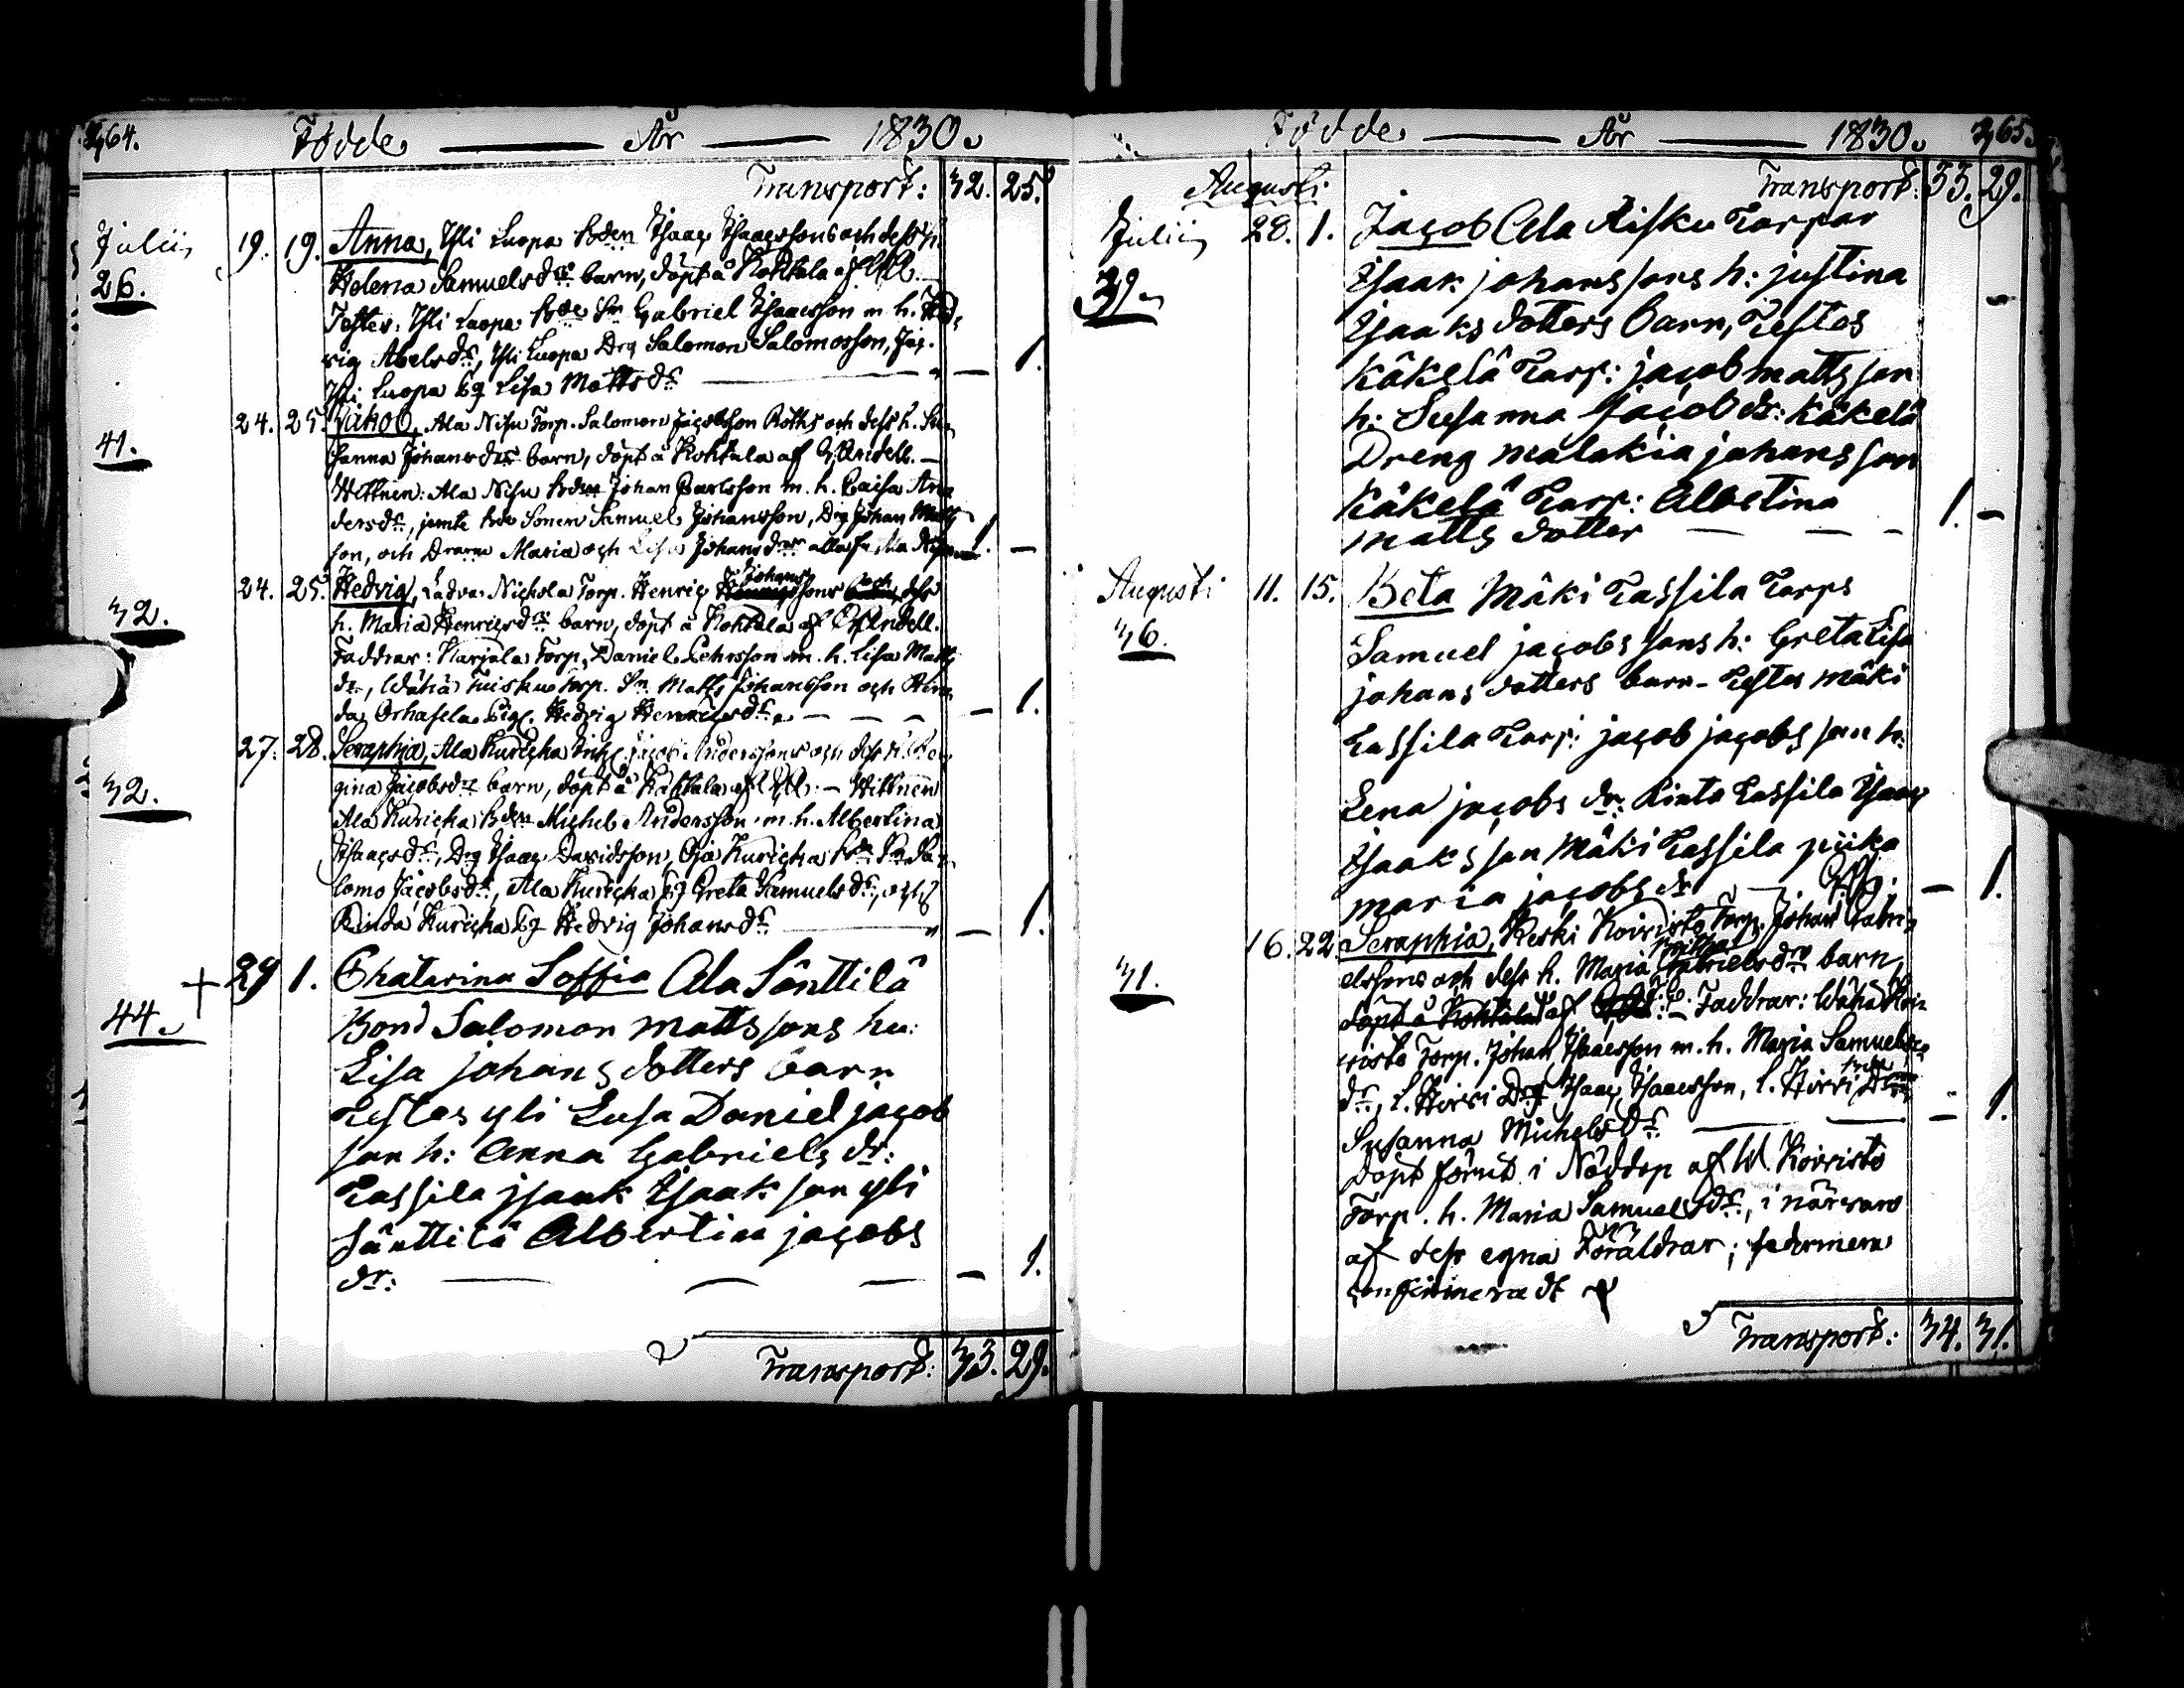 364. Födde — År — 1830.
Transport: 32. 25.
Julii 19. 19. Anna, Yli Luopa Bden Isaac Isaacssons och dess h.
26. Helena Samuelsdrs barn, döpt å Kohtala af
Testes: Yli Luopa Bde Sn Gabriel Isaacsson m. h. Hed-
vig Abelsdr, Yli Luopa Drg Salomon Salomosson,
Yli Luopa Pg Lisa Mattsdr — 1.
24. 25. Jakob, Ala Nisu Torp. Salomon Jacobsson Roths och dess h. Su-
41. sanna Johansdrs barn, döpt å Kohtala af Andell. —
Wittnen: Ala Nisu Bden Johan Carlsson m. h. Caisa An-
dersdr, jemte Bde Sonen Samuel Johansson, Drg Johan Matts
son, och Maria och Lisa Johansdrar alla fr. Ala Nisu 1. —
24. 25. Hedvig, Ladva Nickola Torp. Henric Johanssons och dess
32. h. Maria Henricsdrs barn, döpt å Kohtala af Andell.
Faddrar: Karjala Torp. Daniel Pehrsson m. h. Lisa Matts
dr, Wähä Tuisku Torp. Sn Matts Johansson och Rin-
da Orhasela Pig. Hedvig Henricsdr. — — — 1.
27. 28. Seraphia, Ala Kuricka Anderssons och dess h. Re-
32. gina Jacobsdrs barn, döpt å Kohtala af — Wittnen
Ala Kuricka Bden Michel Andersson m. h. Albertina
Isaacsdr, Drg Isaac Davidsson, Oja Kuricka
lomo Jacobsdr, Ala Kuricka Pg Greta Samuelsdr, och
Rinda Kuricka Pg Hedvig Johansdr — — 1.
+ 29 1. Chatarina Soffia Ala Sänttilä
44. Bond Salomon mattssons hu:
Lisa johans dotters barn
Testes yli Lusa Daniel jacob
son h: Anna Gabriels dr:
Tassila jsaak Isaak son yli
Sänttilä Albertina jacobs
dr: — — — — 1.
Transport: 33. 29.
Födde — År — 1830. 365.
Augusti Transport: 33. 29.
Julii 28. 1. Jacob Ala Risku Torpar
39. Isaak johans sons h: justina
Isaaks dotters barn, Testes
Käkelä Torp: jacob matts son
h: Susanna Jacob dr: Käkelä
Dreng malakia johans son
Käkelä Torp: Albetina
matts dotter — — — 1. —
Augusti 11. 15. Beta Mäki Tassila Torps
36. Samuel jacobs sons h: Greta Lisa
johans dotters barn – Testes mäki
Tassila Torp: jacob jacobs son h:
Lena jacobs dr: Rinta Tassila Isaac
Isaaks son Mäki Tassila piika
maria jacobs dr — — 1.
16. 22 Seraphia, Keski Koivisto Torp. Johan Gabri-
31. elssons och dess h. Maria Gabrielsdrs barn,
döpt å Kohtala af Faddrar: Wähä Koi-
visto Torp. Johan Isaacsson m. h. Maria Samuels
dr, L. Hirvi Drg Isaac Isaacsson, L. Hirvi
Susanna Michelsdr. — — — 1.
Döpt förut i Nöddop af W. Koivisto
Torp. h. Maria Samuelsdr, i närvaro
af dess egna Föräldrar; sedermera
confirmeradt
Transport: 34. 31.